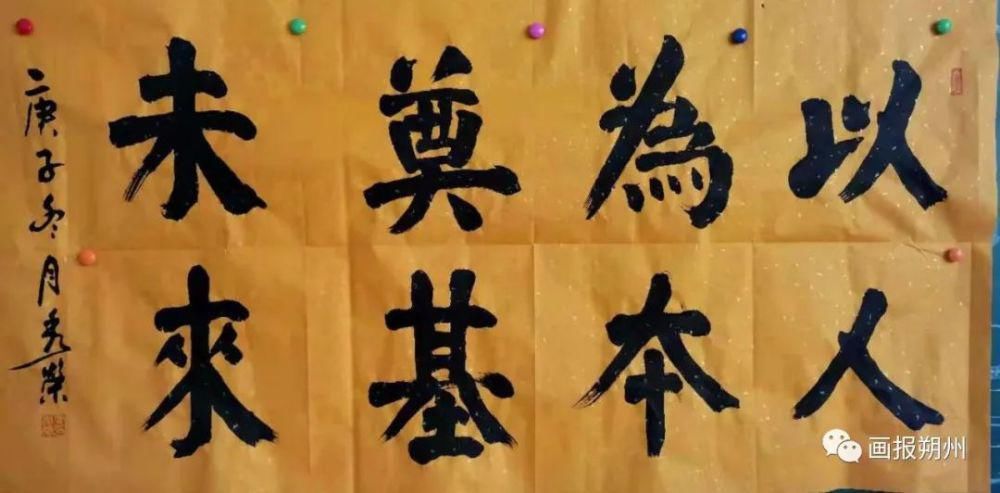 以人
為本
奠基
未來
庚子冬月秀榮
画报朔州